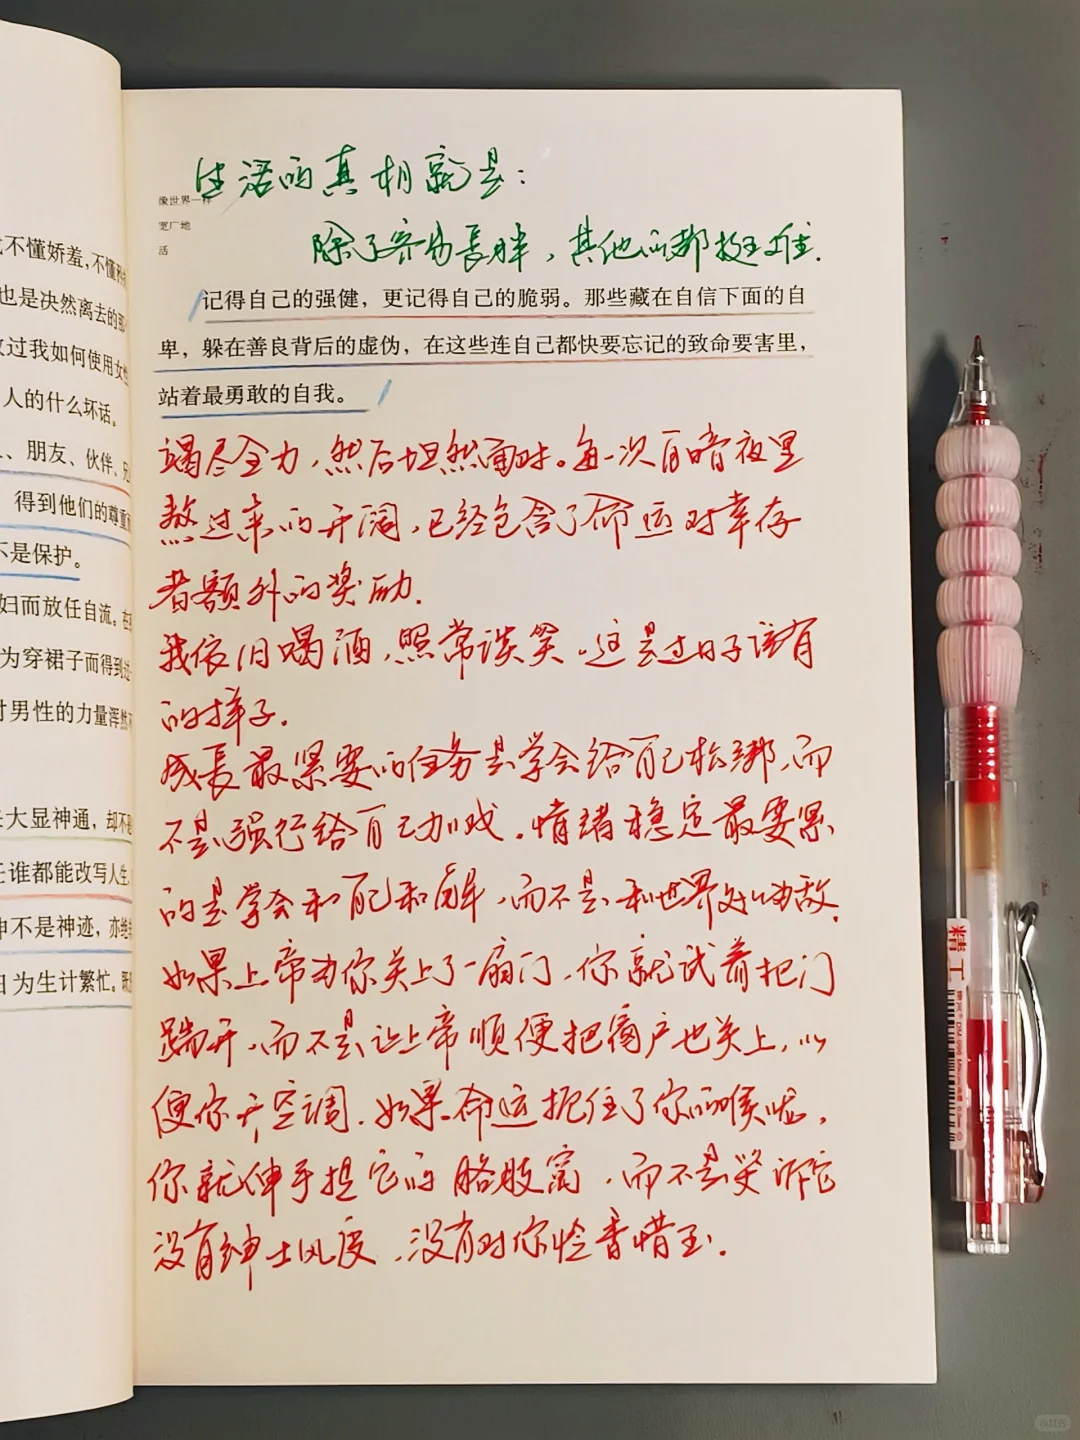 不懂娇羞，不懂
也是决然离去的那
过我如何使用女性
人的什么坏话。
、朋友、伙伴、
得到他们的尊重
不是保护。
妇而放任自流。在
为穿裙子而得到过
对男性的力量浑然不
大显神通，却不
谁都能改写人生，
不是神迹，亦绝
日为生计繁忙。既
生活的真相就是：
像世界一样
宽广地
活
除了容易長胖，其他的都挺难.
记得自己的强健，更记得自己的脆弱。那些藏在自信下面的自
卑，躲在善良背后的虚伪，在这些连自己都快要忘记的致命要害里，
站着最勇敢的自我。
竭尽全力，然后坦然面对。每一次自暗夜里
熬过来的开阔，已经包含了命运对幸存
者额外的奖励.
我依旧喝酒，照常谈笑。这是过日子该有
的样子.
成長最紧要的任务是学会给自己松绑，而
不是强行给自己加戏。情绪稳定最要紧
的是学会和自己和解，而不是和世界处处为敌.
如果上帝为你关上了一扇门，你就试着把门
踹开，而不是让上帝顺便把窗户也关上，以
便你开空调.如果命运扼住了你的喉咙，
你就伸手挠它的胳肢窝，而不是哭诉它
没有绅士风度，没有对你怜香惜玉.
精工